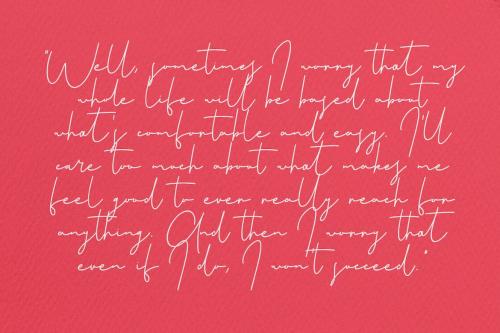 "Well, sometimes I worry that my
whole life will be based about
what's comfortable and easy. I'll
care too much about what makes me
feel good to ever really reach for
anything. And then I worry that
even if I do, I won't succeed."